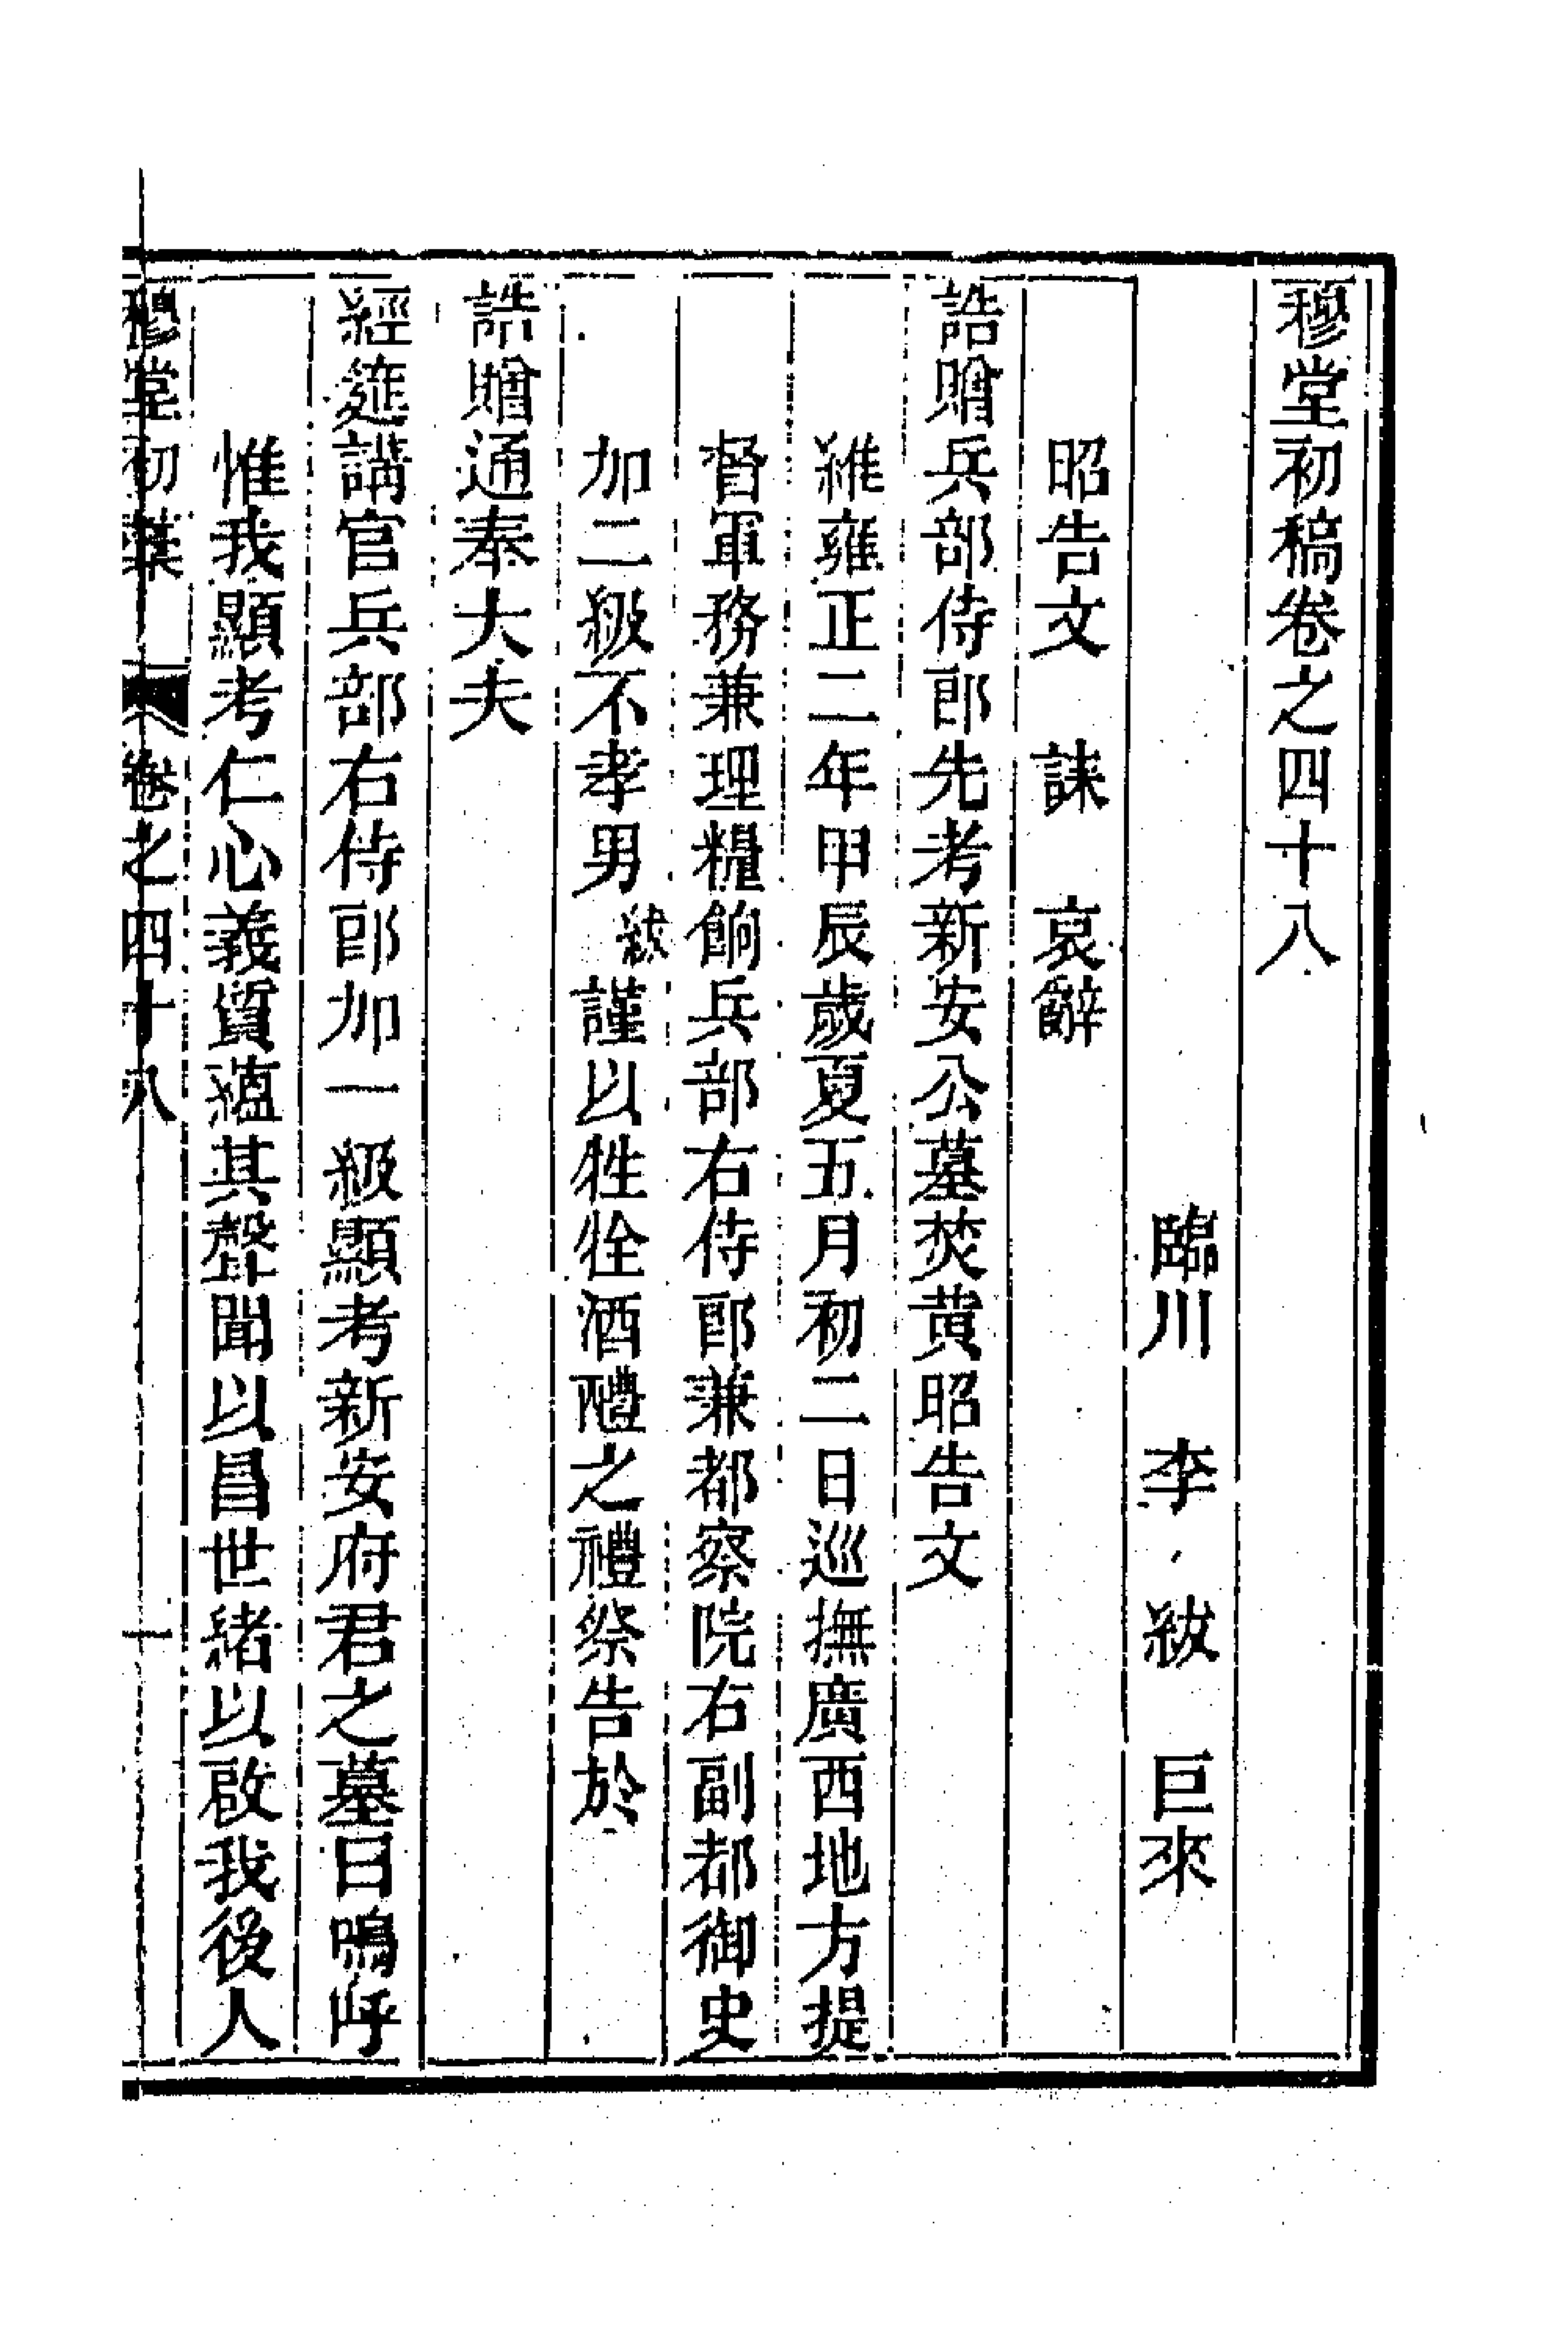 穆堂初稿卷之四十八
臨川　李　紱　巨來
昭告文　誄　哀辭
誥贈兵部侍郎先考新安公墓焚黃昭告文
維雍正二年甲辰歲夏五月初二日巡撫廣西地方提
督軍務兼理糧餉兵部右侍郎兼都察院右副都御史
加二級不孝男紱謹以牲牷酒醴之禮祭告於
誥贈通奉大夫
經筵講官兵部右侍郎加一級顯考新安府君之墓曰嗚呼
惟我顯考仁心義質蘊其聲聞以昌世緒以啟我後人
穆堂初藁　卷之四十八　一